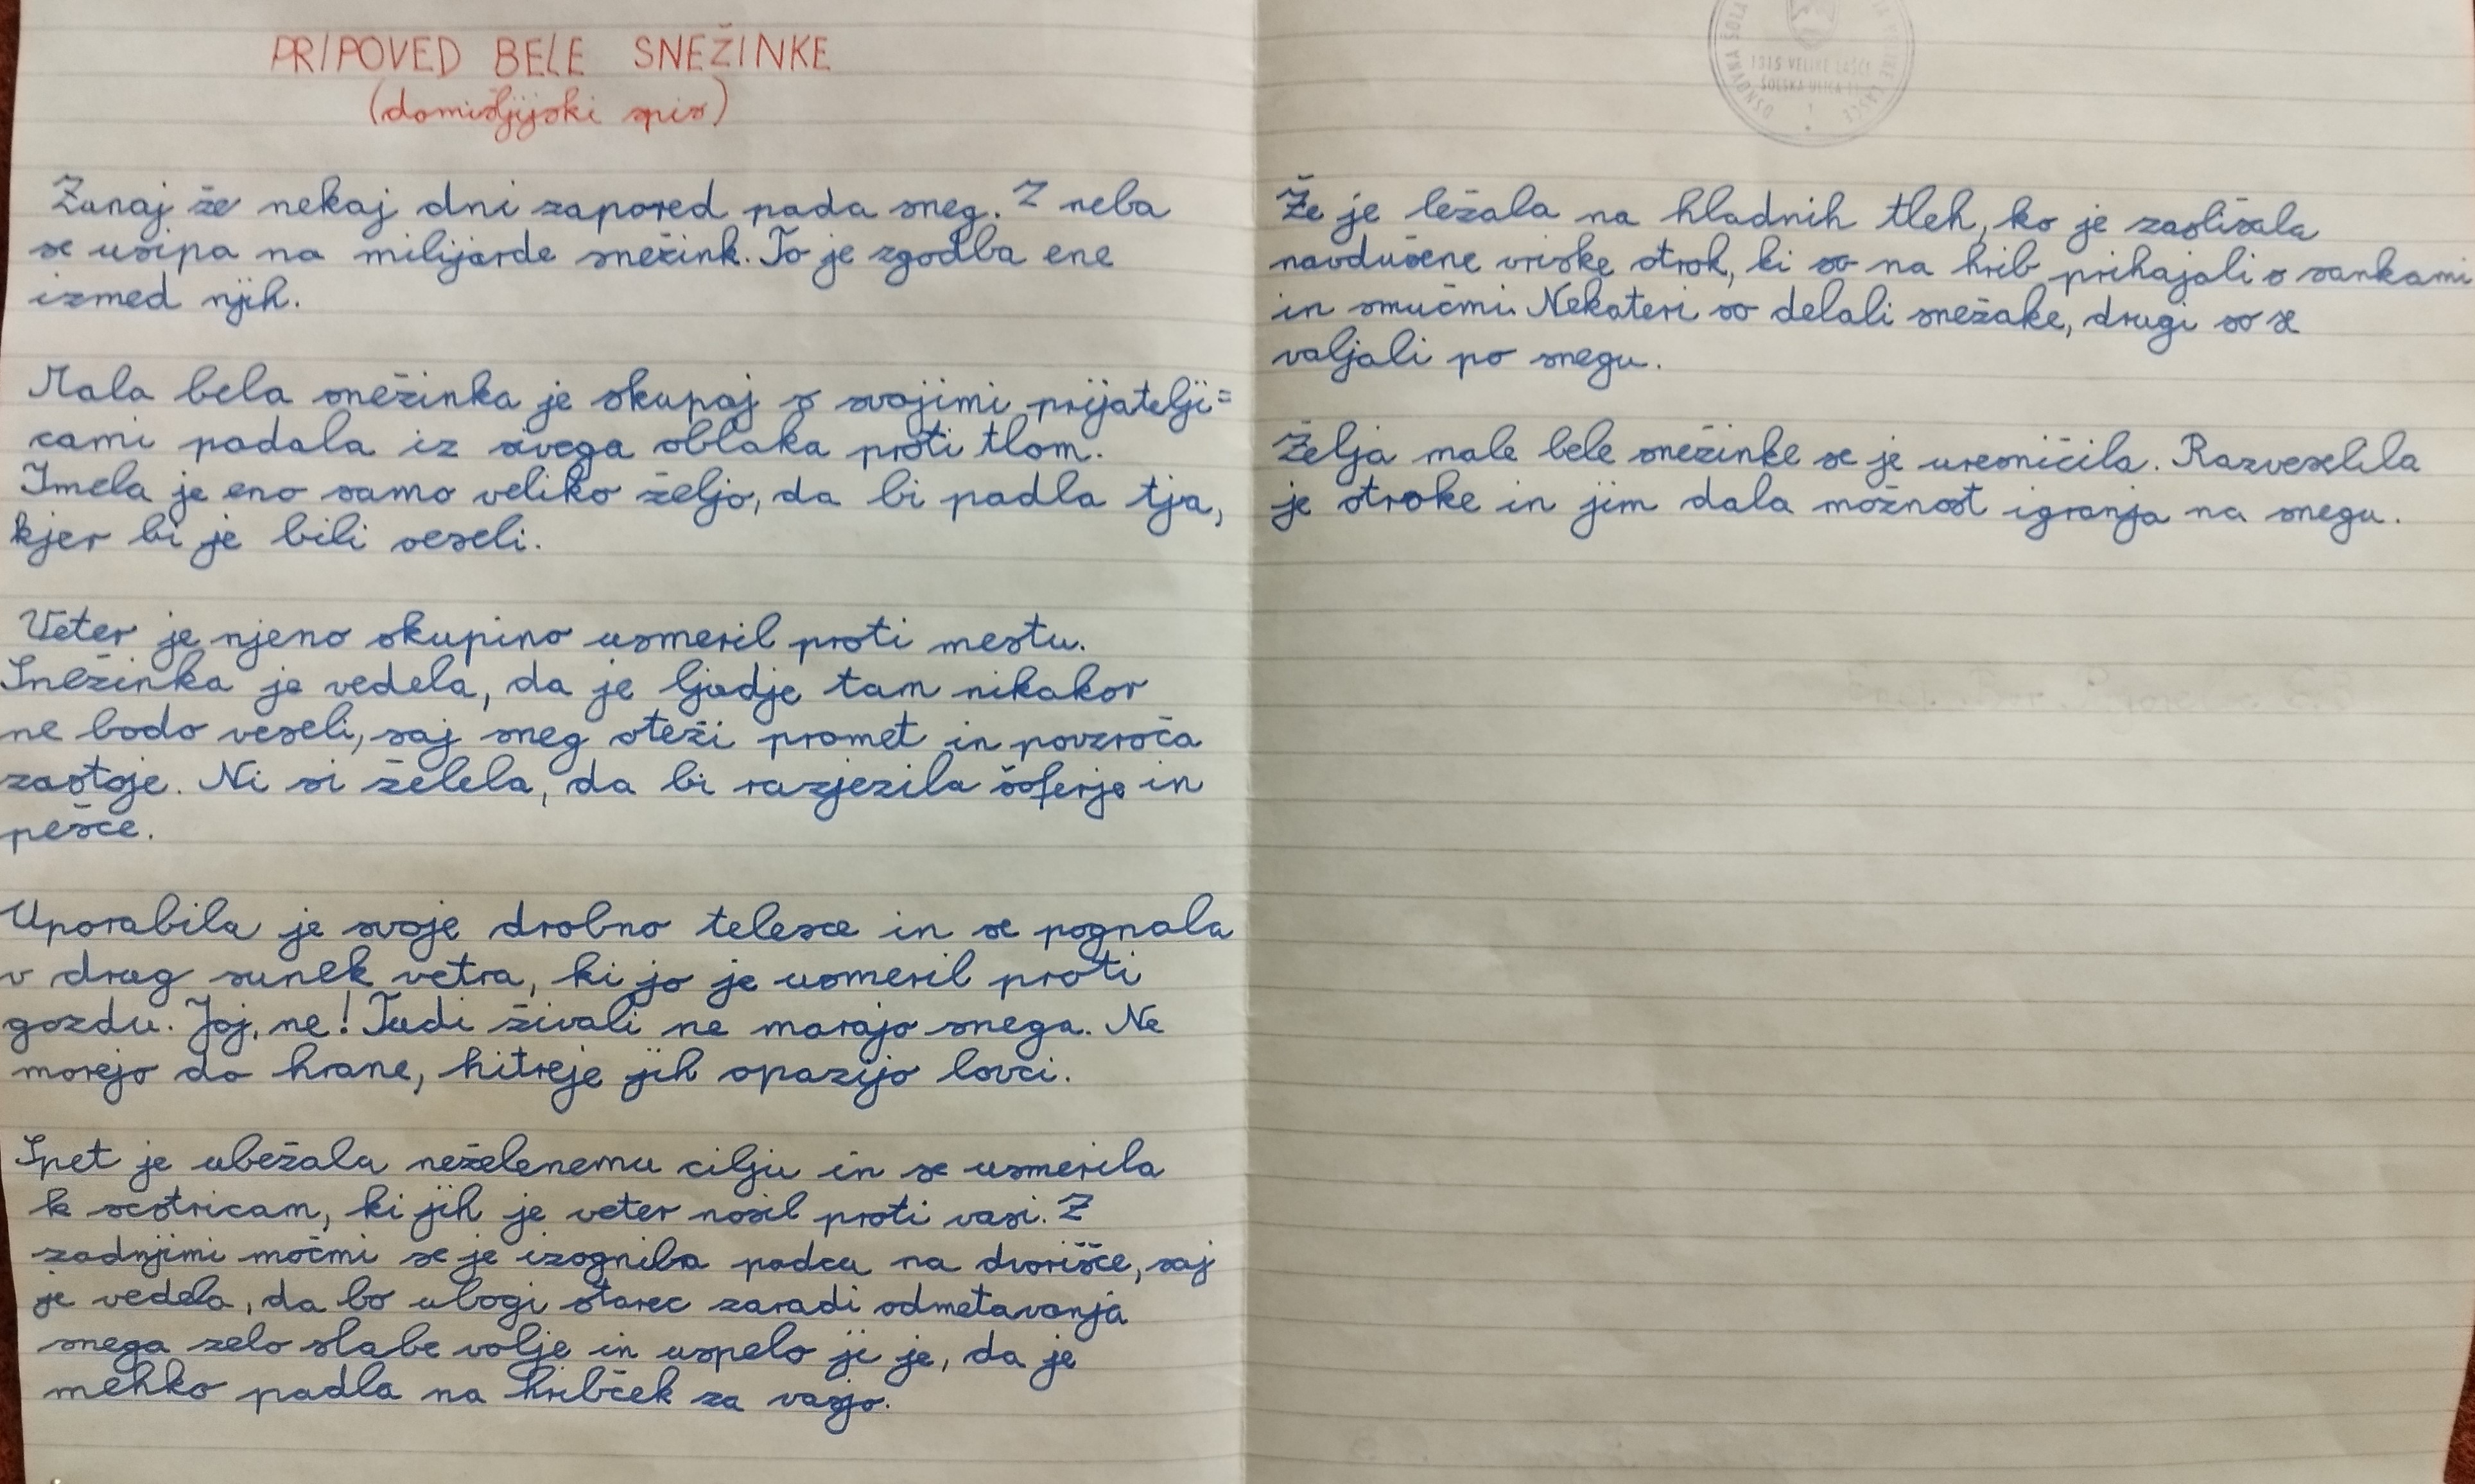 PRIPOVED BELE SNEŽINKE
(domišljijski spis)
Zunaj že nekaj dni zapored pada sneg. Z neba
se usipa na milijarde snežink. To je zgodba ene
izmed njih.
Mala bela snežinka je skupaj s svojimi prijatelji=
cami padala iz sivega oblaka proti tlom.
Imela je eno samo veliko željo, da bi padla tja,
kjer bi je bili veseli.
Veter je njeno skupino usmeril proti mestu.
Snežinka je vedela, da je ljudje tam nikakor
ne bodo veseli, saj sneg oteži promet in povzroča
zastoje. Ni si želela, da bi razjezila šoferje in
pešce.
Uporabila je svoje drobno telesce in se pognala
v drug sunek vetra, ki jo je usmeril proti
gozdu. Joj, ne! Tudi živali ne marajo snega. Ne
morejo do hrane, hitreje jih opazijo lovci.
Spet je ubežala neželenemu cilju in se usmerila
k sestricam, ki jih je veter nosil proti vasi. Z
zadnjimi močmi se je izognila padcu na dvorišče, saj
je vedela, da bo ubogi starec zaradi odmetavanja
snega zelo slabe volje in uspelo ji je, da je
mehko padla na hribček za vasjo.
Že je ležala na hladnih tleh, ko je zaslišala
navdušene vriske otrok, ki so na hrib prihajali s sankami
in smučmi. Nekateri so delali snežake, drugi so se
valjali po snegu.
Želja male bele snežinke se je uresničila. Razveselila
je otroke in jim dala možnost igranja na snegu.
OSNOVNA ŠOLA
1315 VELIKE LAŠČE
ŠOLSKA ULICA 11
1